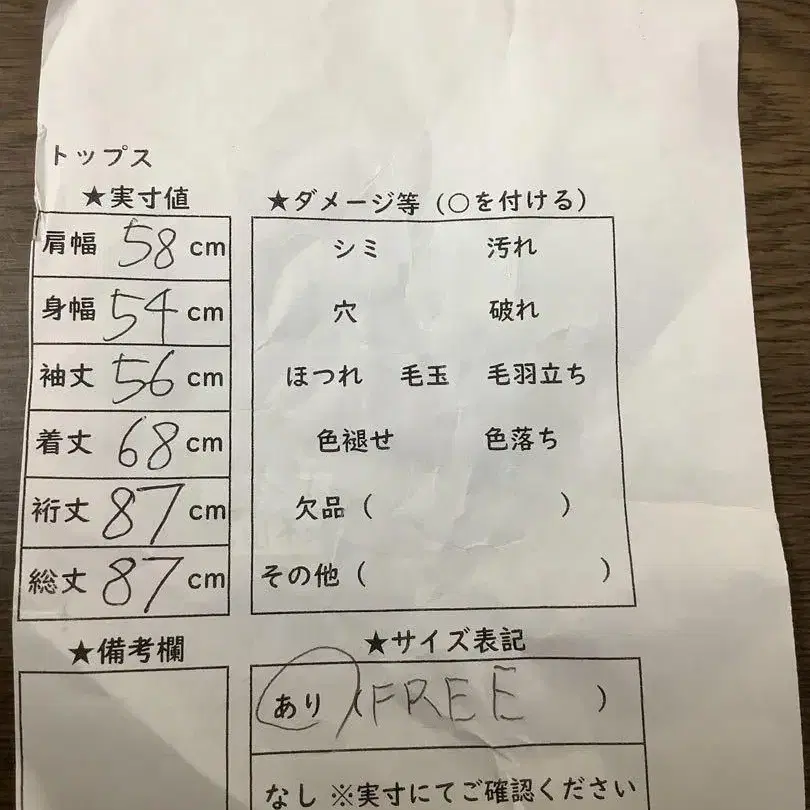 トップス
★実寸値
肩幅 58 cm
身幅 54 cm
袖丈 56 cm
着丈 68 cm
裄丈 87 cm
総丈 87 cm
★備考欄
★ダメージ等(○を付ける)
シミ 汚れ
穴 破れ
ほつれ 毛玉 毛羽立ち
色褪せ 色落ち
欠品( )
その他( )
★サイズ表記
あり(FREE )
なし ※実寸にてご確認ください